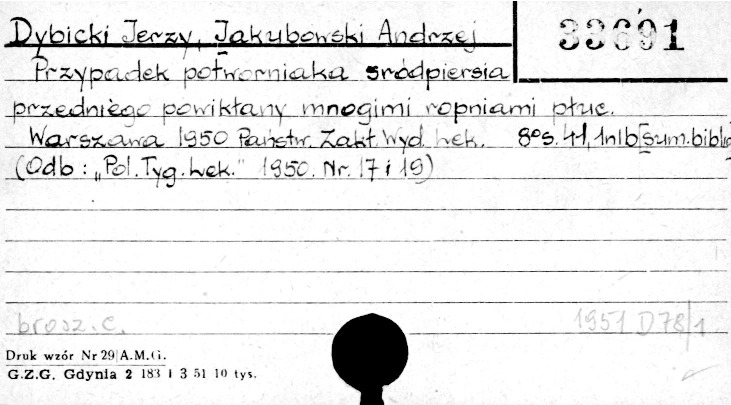 Dybicki Jerzy, Jakubowski Andrzej
33691
Przypadek potworniaka śródpiersia
przedniego powikłany mnogimi ropniami płuc.
Warszawa 1950 Państw. Zakł. Wyd. Lek. 8° s. 41, 1nlb [sum. bibliog
(Odb: „Pol. Tyg. Lek." 1950. Nr. 17 i 19)
brosz. c. 1951 D 78/1
Druk wzór Nr 29 A.M.G.
G.Z.G. Gdynia 2 183 1 3 51 10 tys.